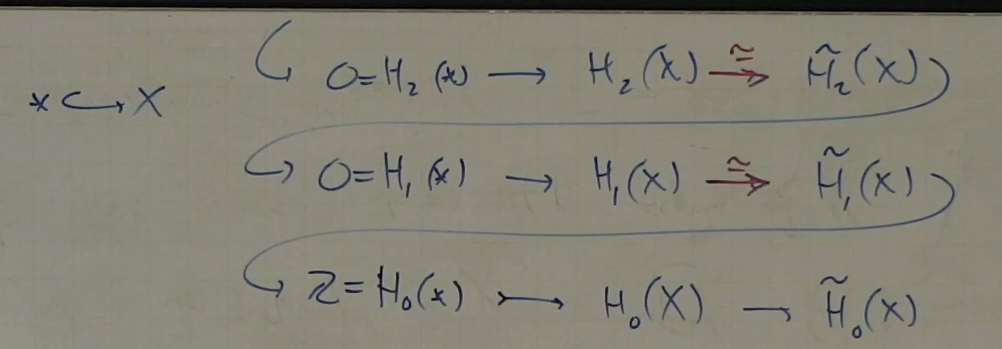 ↪ 0=H₂(*) → H₂(X) ≅→ H̃₂(X)
* ↪ X
↪ 0=H₁(*) → H₁(X) ≅→ H̃₁(X)
↪ ℤ=H₀(*) ↣ H₀(X) → H̃₀(X)